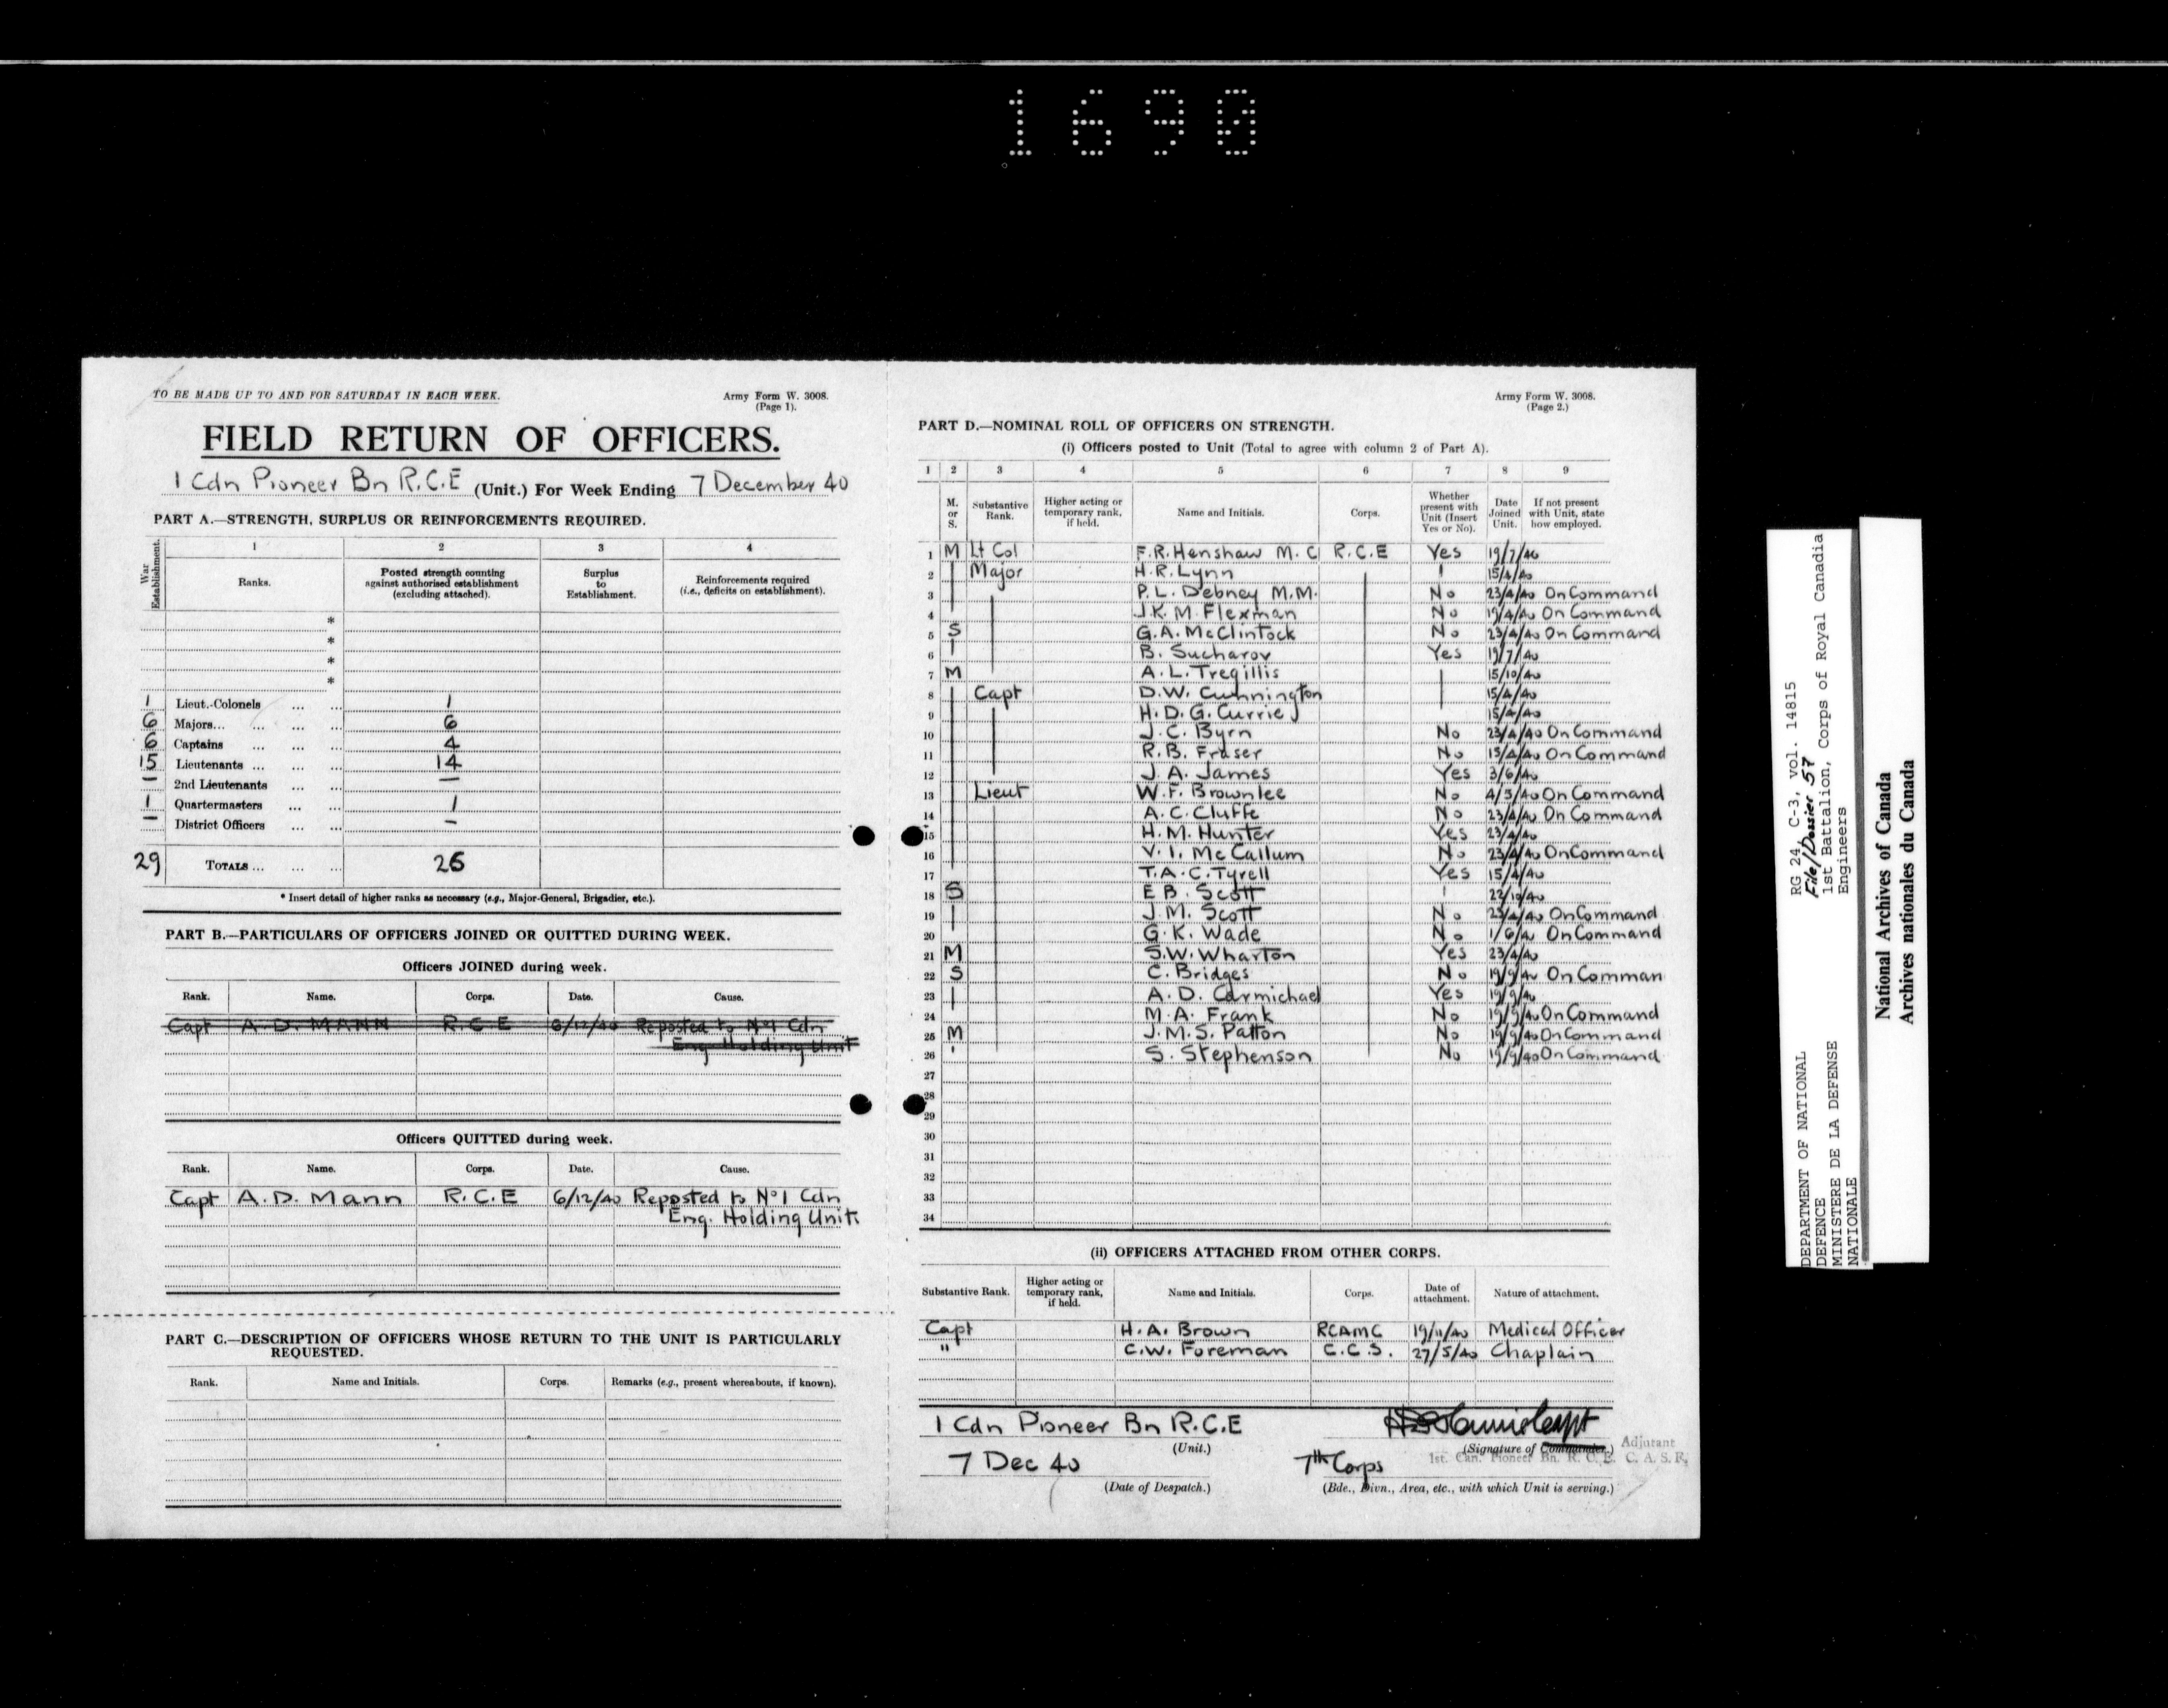 1690
TO BE MADE UP TO AND FOR SATURDAY IN EACH WEEK.
Army Form W. 3008.
(Page 1).
FIELD RETURN OF OFFICERS.
1 Cdn Pioneer Bn R.C.E (Unit.) For Week Ending 7 December 40
PART A.—STRENGTH, SURPLUS OR REINFORCEMENTS REQUIRED.
War Establishment.
1 2 3 4
Ranks. Posted strength counting against authorised establishment (excluding attached). Surplus to Establishment. Reinforcements required (i.e., deficits on establishment).
*
*
*
*
1 Lieut.-Colonels ... ... 1
6 Majors... ... ... ... 6
6 Captains ... ... ... 4
15 Lieutenants ... ... ... 14
— 2nd Lieutenants ... ... —
1 Quartermasters ... ... 1
— District Officers ... ... —
29 TOTALS ... ... 26
* Insert detail of higher ranks as necessary (e.g., Major-General, Brigadier, etc.).
PART B.—PARTICULARS OF OFFICERS JOINED OR QUITTED DURING WEEK.
Officers JOINED during week.
Rank. Name. Corps. Date. Cause.
Capt A. D. MANN R.C.E 6/12/40 Reposted to No 1 Cdn
Eng Holding Unit
Officers QUITTED during week.
Rank. Name. Corps. Date. Cause.
Capt A. D. Mann R.C.E 6/12/40 Reposted to No 1 Cdn
Eng. Holding Unit
PART C.—DESCRIPTION OF OFFICERS WHOSE RETURN TO THE UNIT IS PARTICULARLY
REQUESTED.
Rank. Name and Initials. Corps. Remarks (e.g., present whereabouts, if known).
Army Form W. 3008.
(Page 2.)
PART D.—NOMINAL ROLL OF OFFICERS ON STRENGTH.
(i) Officers posted to Unit (Total to agree with column 2 of Part A).
1 2 3 4 5 6 7 8 9
M. or S. Substantive Rank. Higher acting or temporary rank, if held. Name and Initials. Corps. Whether present with Unit (Insert Yes or No). Date Joined Unit. If not present with Unit, state how employed.
1 M Lt Col F.R. Henshaw M.C R.C.E Yes 19/7/40
2 Major H.R. Lynn 15/4/40
3 P.L. Debney M.M. No 23/4/40 On Command
4 J.K.M. Flexman No 19/4/40 On Command
5 S G.A. McClintock No 23/4/40 On Command
6 B. Sucharov Yes 19/7/40
7 M A.L. Tregillis 15/10/40
8 Capt D.W. Cunnington 15/4/40
9 H.D.G. Currie 15/4/40
10 J.C. Byrn No 23/4/40 On Command
11 R.B. Fraser No 15/4/40 On Command
12 J.A. James Yes 3/6/40
13 Lieut W.F. Brownlee No 4/5/40 On Command
14 A.C. Cluffe No 23/4/40 On Command
15 H.M. Hunter Yes 23/4/40
16 V.I. McCallum No 23/4/40 On Command
17 T.A.C. Tyrell Yes 15/4/40
18 S E B. Scott 22/10/40
19 J.M. Scott No 23/4/40 On Command
20 G.K. Wade No 1/6/40 On Command
21 M S.W. Wharton Yes 23/4/40
22 S C. Bridges No 19/9/40 On Comman
23 A.D. Carmichael Yes 19/9/40
24 M.A. Frank No 19/9/40 On Command
25 M J.M.S. Patton No 19/9/40 On Command
26 S. Stephenson No 19/9/40 On Command
27
28
29
30
31
32
33
34
(ii) OFFICERS ATTACHED FROM OTHER CORPS.
Substantive Rank. Higher acting or temporary rank, if held. Name and Initials. Corps. Date of attachment. Nature of attachment.
Capt H.A. Brown RCAMC 19/11/40 Medical Officer
" C.W. Foreman C.C.S. 27/5/40 Chaplain
1 Cdn Pioneer Bn R.C.E
(Unit.)
(Signature of Commander.) Adjutant
1st. Can. Pioneer Bn. R. C. E. C. A. S. F.
7 Dec 40
(Date of Despatch.)
7th Corps
(Bde., Divn., Area, etc., with which Unit is serving.)
RG 24, C-3, vol. 14815
File/Dossier 57
1st Battalion, Corps of Royal Canadia
Engineers
DEPARTMENT OF NATIONAL
DEFENCE
MINISTERE DE LA DEFENSE
NATIONALE
National Archives of Canada
Archives nationales du Canada